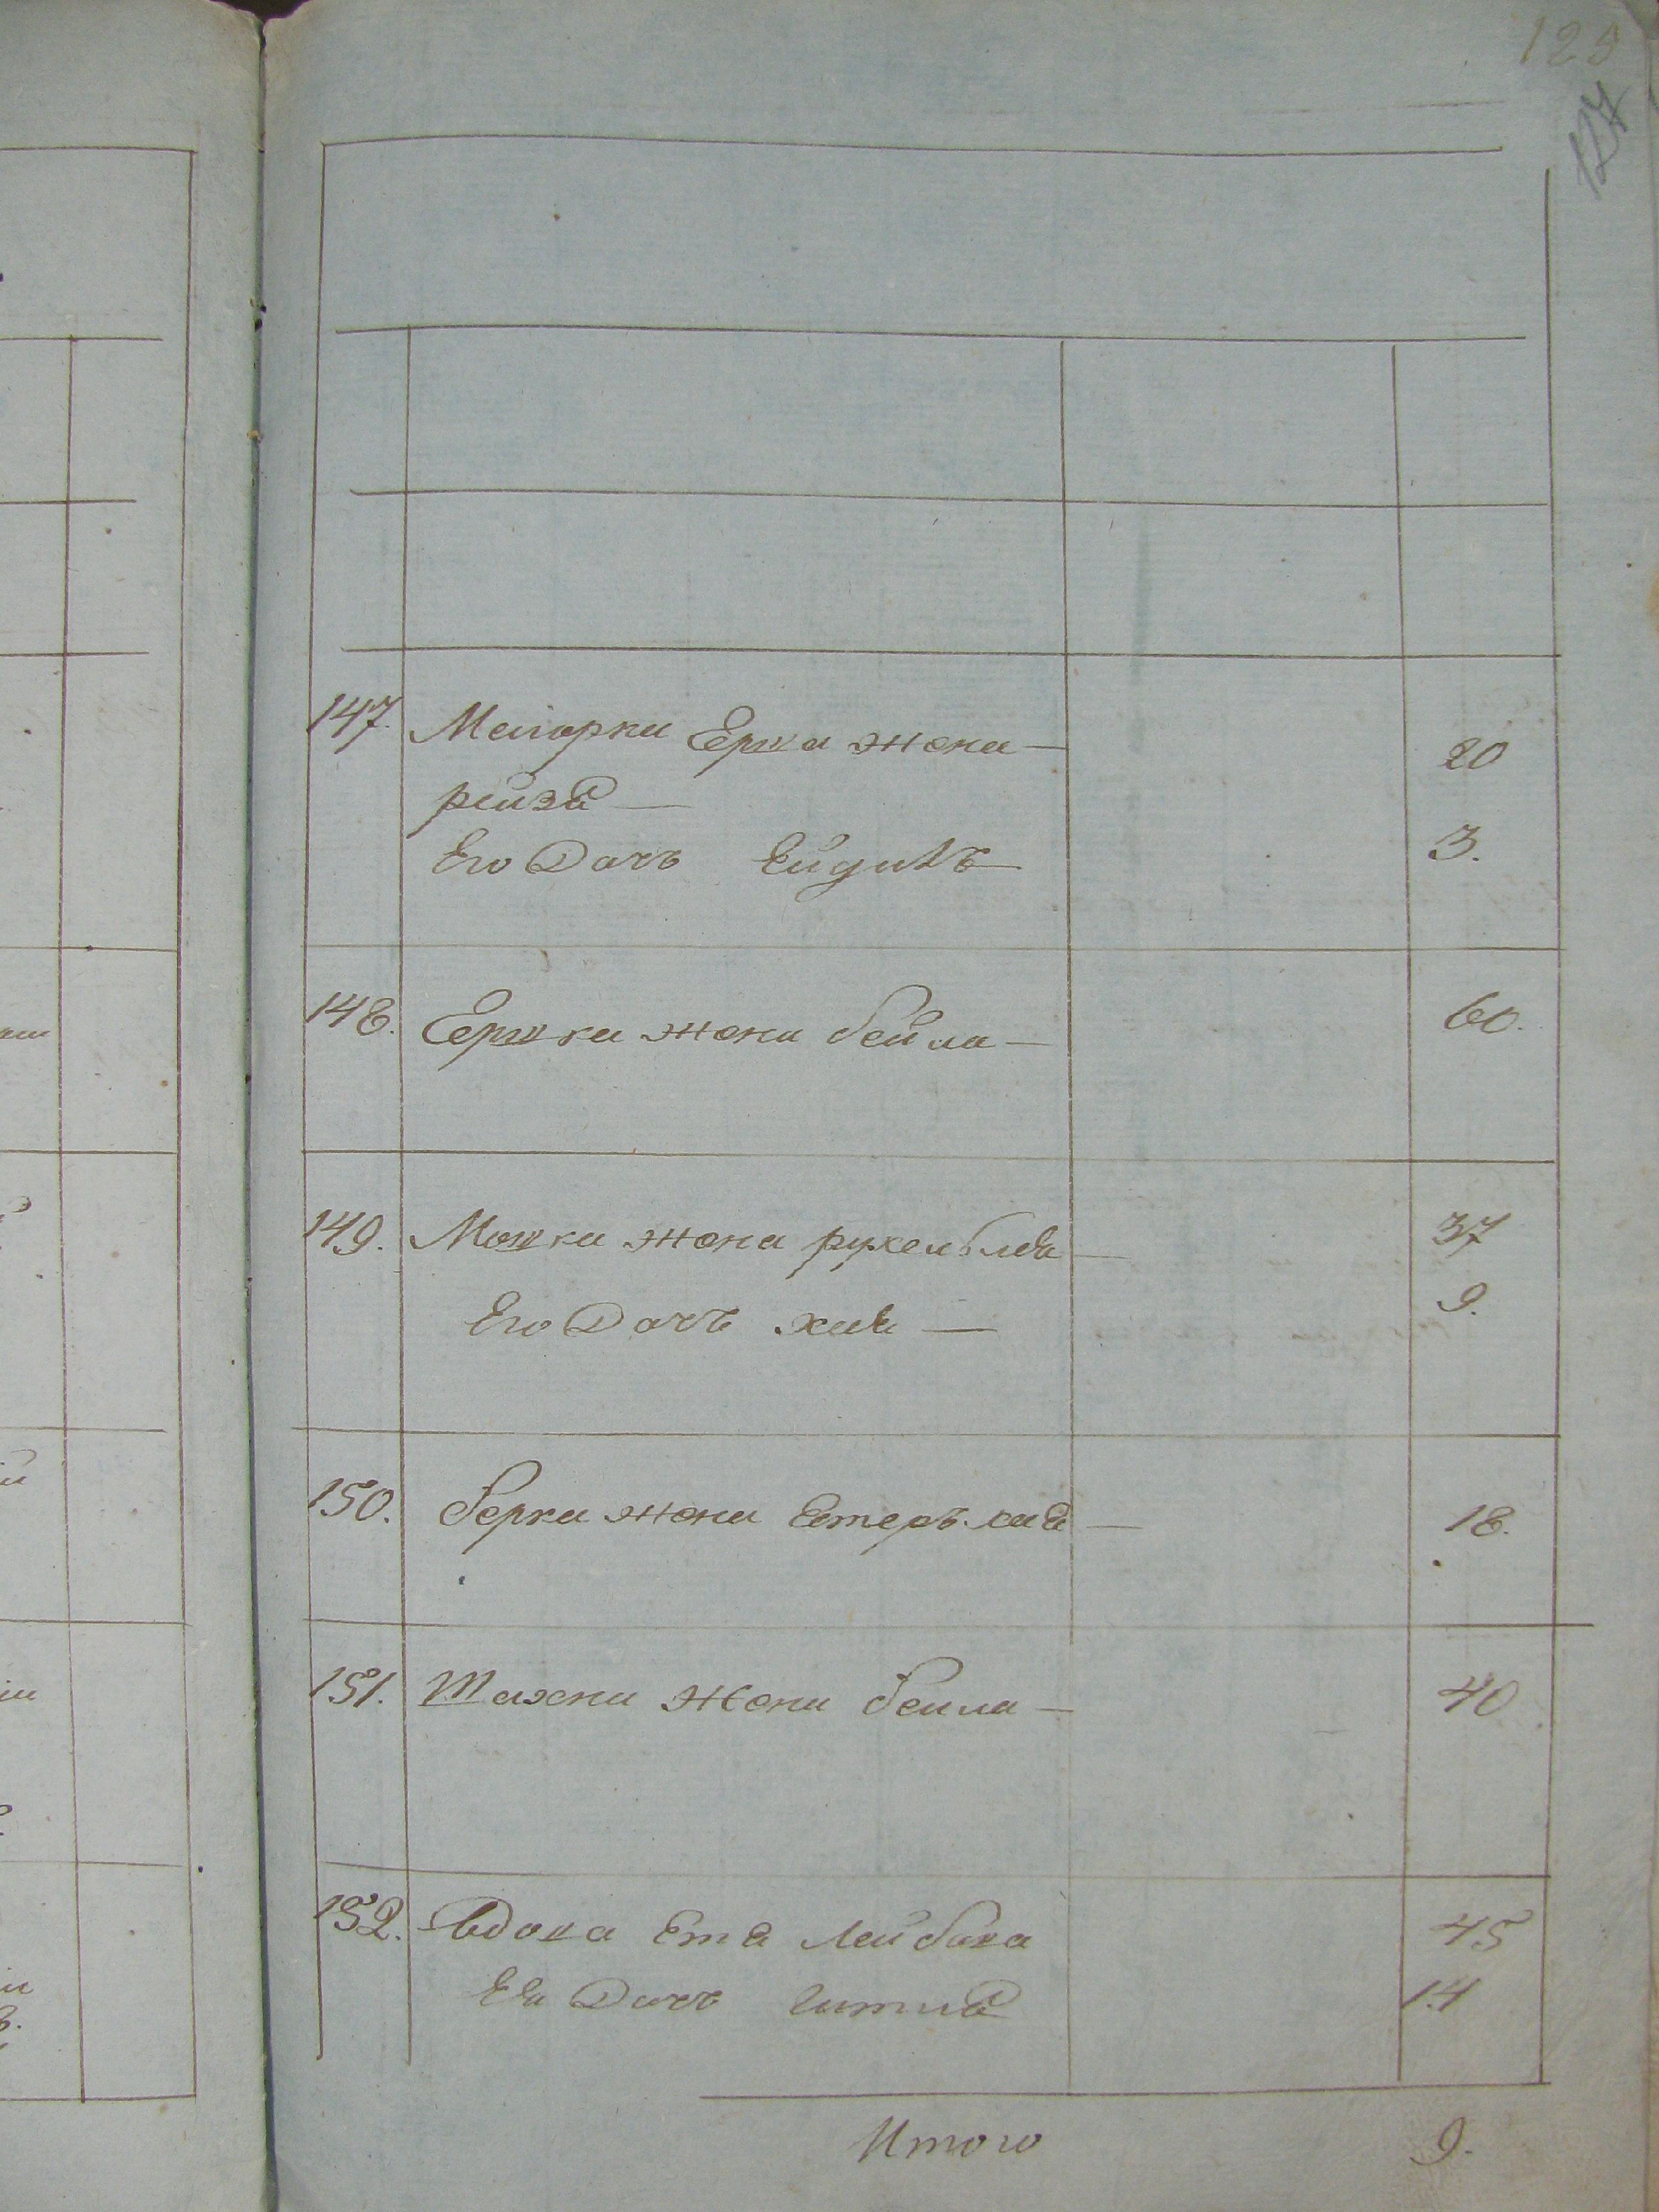 125
127
147. Маіорка Ершка жена — 20
рейза —
Его Дочь Ейдиль 3.
148. Ершка жена бейла — 60.
149. Мошка жена рухельлея — 37
Его Дочь хая — 9.
150. берка жена Естеръ хая — 18.
151. Шахна жена беила — 40
152. Вдова Ета Лейбова 45
Ея Дочь гитля 14
Итого 9.